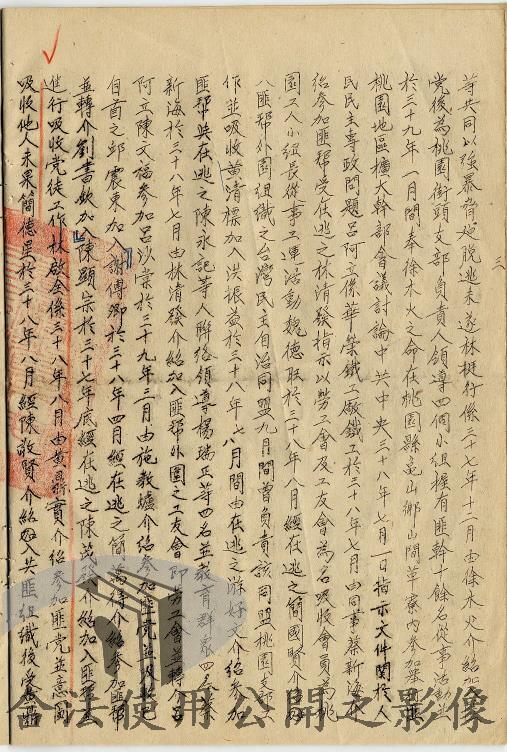 三
等共同以強暴脅迫脫逃未遂林挺行係三十七年十二月由徐木火介紹加
党後為桃園街頭支部負責人領導四個小組擁有匪幹十餘名從事活動並
於三十九年一月間奉徐木火之命在桃園縣龜山鄉山間草寮內參加
桃園地區擴大幹部會議討論中共中央三十八年七月一日指示文件關於人
民民主專政問題呂阿立係華築鐵工廠鐵工於三十八年七月由同事蔡新海介
紹參加匪幫受在逃之林清發指示以勞工會及工友會為名吸收會員為桃
園工人小組長從事工運活動魏德旺於三十八年八月經在逃之簡國賢介紹加
入匪幫外圍組織之台灣民主自治同盟九月間曾負責該同盟桃園支部工
作並吸收黃清標加入洪振益於三十八年七八月間由在逃之游好文介紹參加
匪幫與在逃之陳永記等人聯絡領導楊瑞正等四名並教育群眾四名蔡
新海於三十八年七月由林清發介紹加匪幫外圍之工友會即勞工會並轉介呂
阿立陳文福參加呂沙棠於三十九年三月由施教爐介紹參加匪党並吸收已
自首之邱震東加入謝傳鄉於三十八年四月經在逃之簡萬得介紹參加匪幫
並轉介劉書欽加入陳顯宗於三十七年底經在逃之陳英介紹加入匪黨
進行吸收党徒工作林啟全係三十八年八月由黃鼎實介紹參加匪党並意圖
吸收他人未果簡德星於三十八年八月經陳敬賢介紹加入共匪組織後受匪
合法使用公開之影像